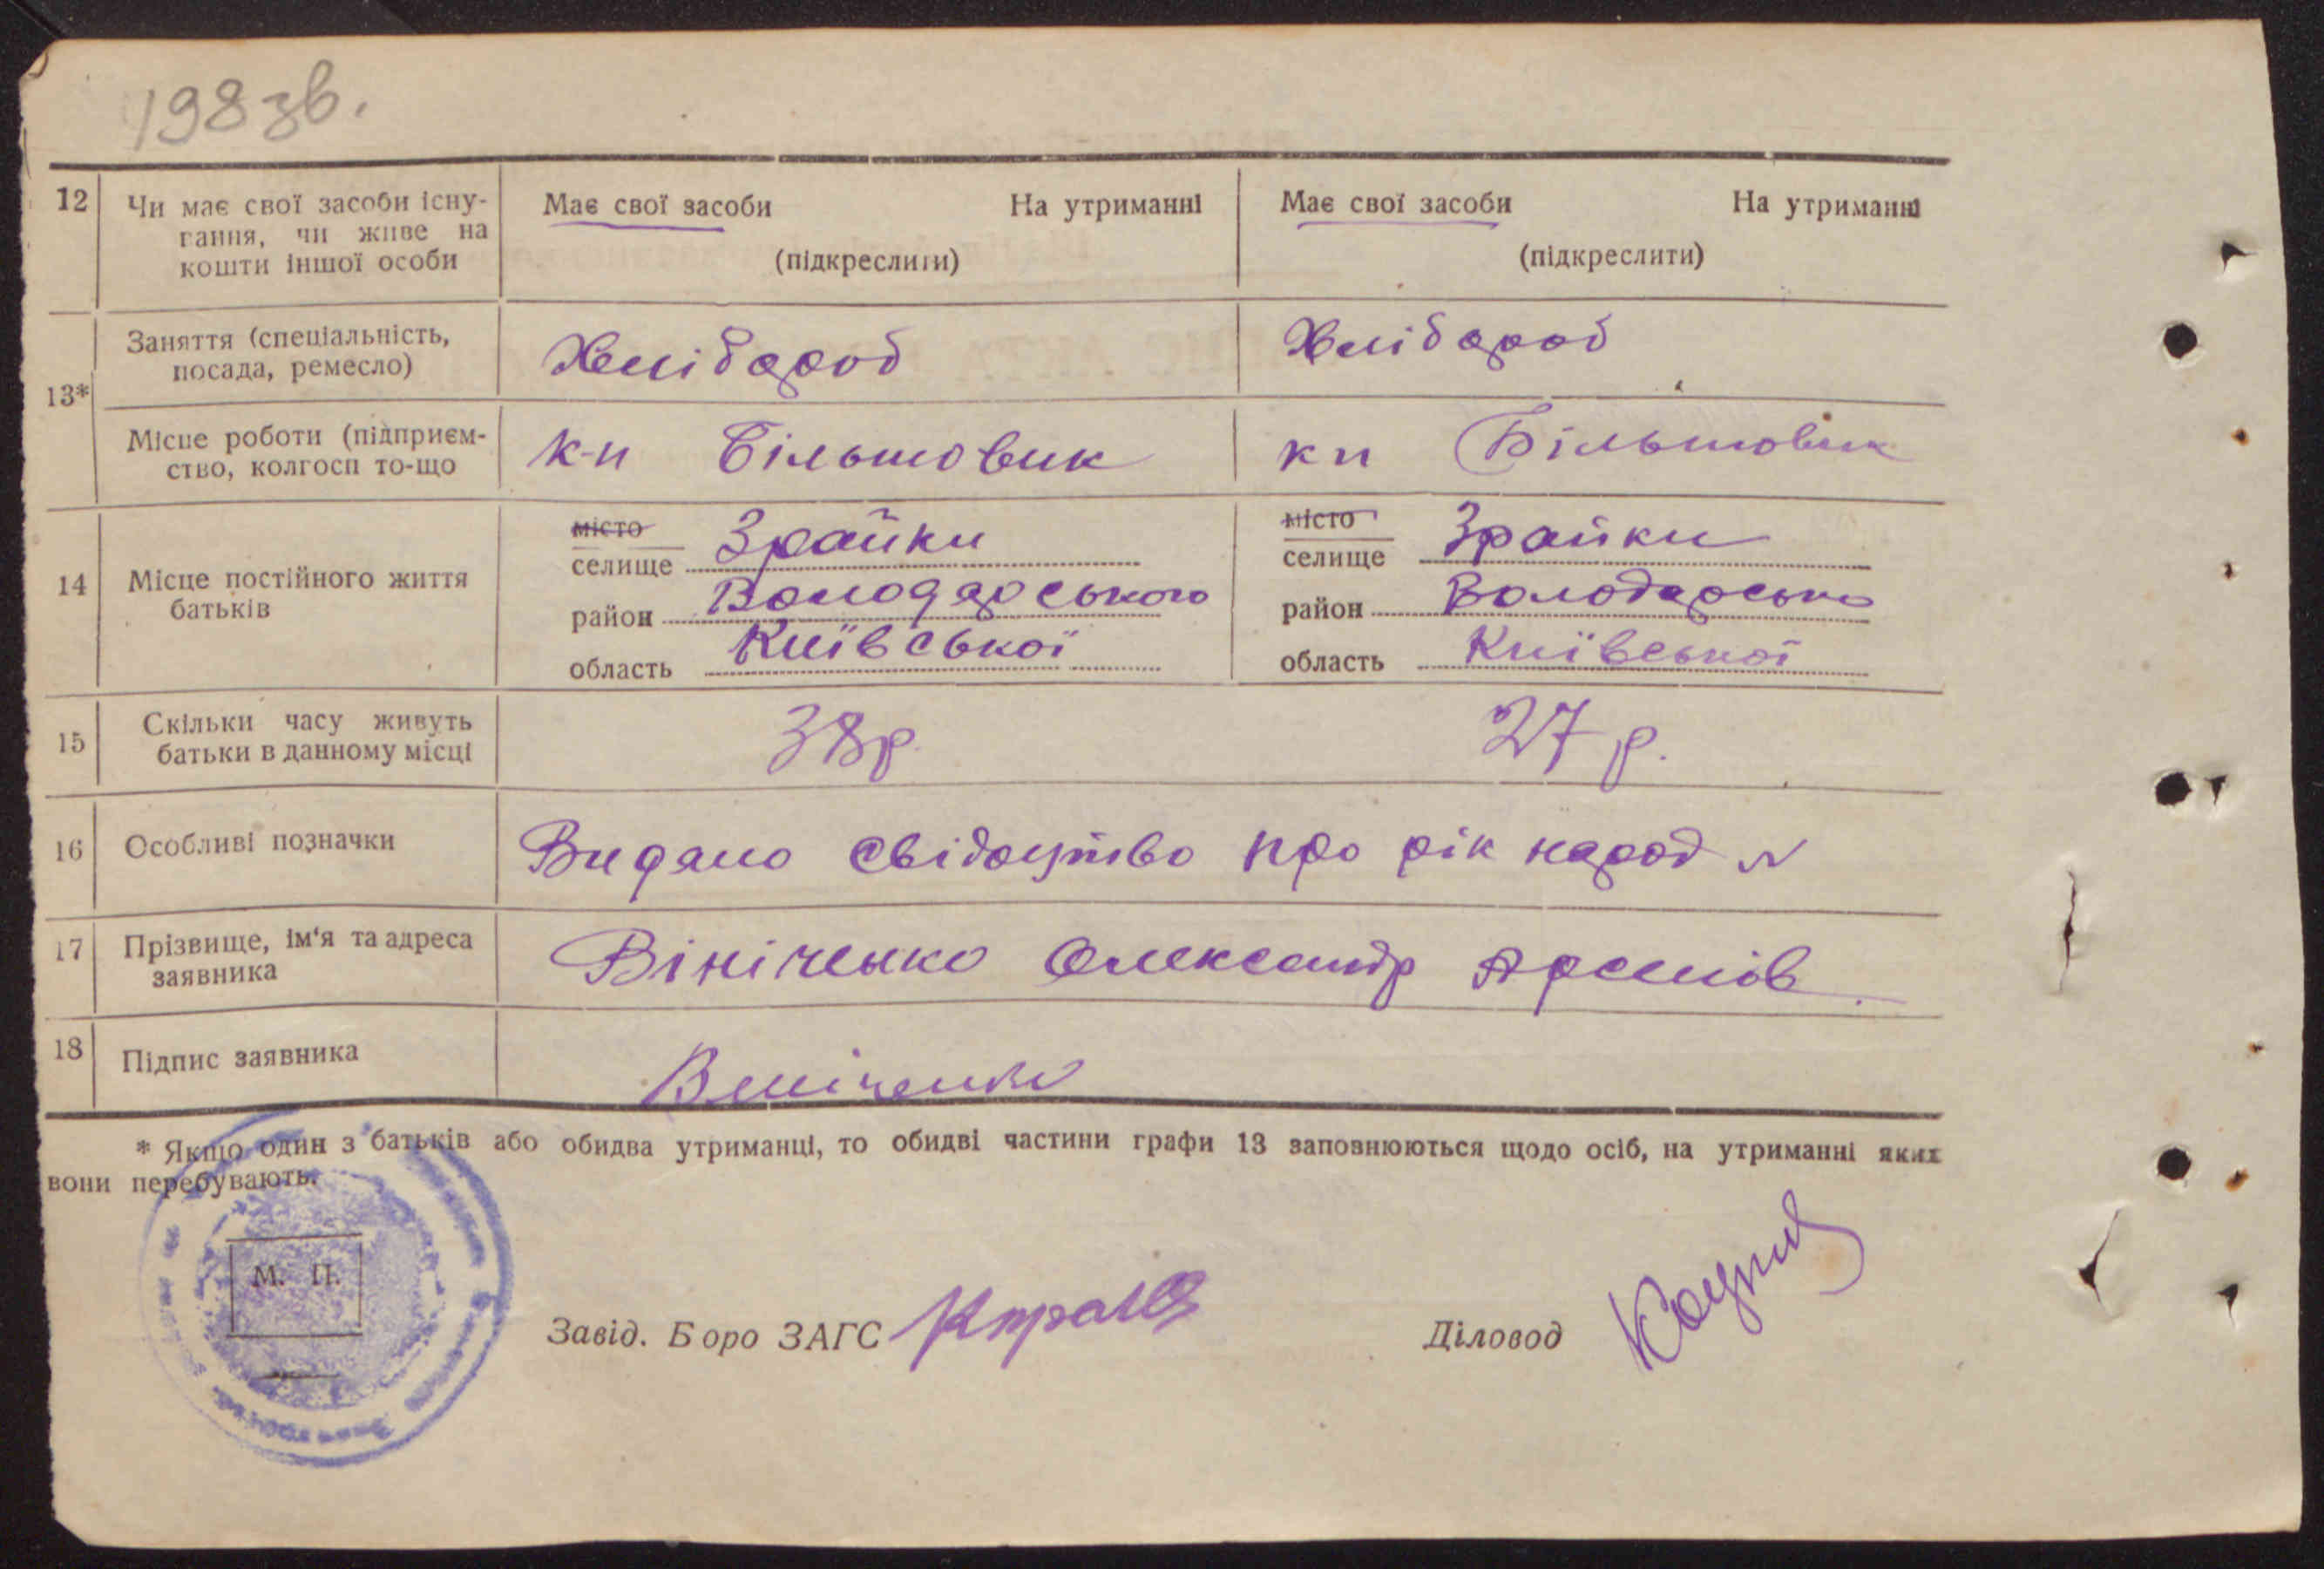 198 зв.
12 Чи має свої засоби існу-
вання, чи живе на
кошти іншої особи
Має свої засоби На утриманні
(підкреслити)
Має свої засоби На утриманні
(підкреслити)
13*
Заняття (спеціальність,
посада, ремесло)
Хлібороб
Хлібороб
Місце роботи (підприєм-
ство, колгосп то-що
к-п Більшовик
кп Більшовик
14 Місце постійного життя
батьків
місто
селище Зрайки
район Володарського
область Київської
місто
селище Зрайки
район Володарсько
область Київської
15 Скільки часу живуть
батьки в данному місці
38р.
27 р.
16 Особливі позначки
Видано свідоцтво про рік народ №
17 Прізвище, ім'я та адреса
заявника
Вініченко Олександр Арсенів
18 Підпис заявника
Вініченко
* Якщо один з батьків або обидва утриманці, то обидві частини графи 13 заповнюються щодо осіб, на утриманні яких
вони перебувають.
М. П.
Завід. Бюро ЗАГС
Діловод